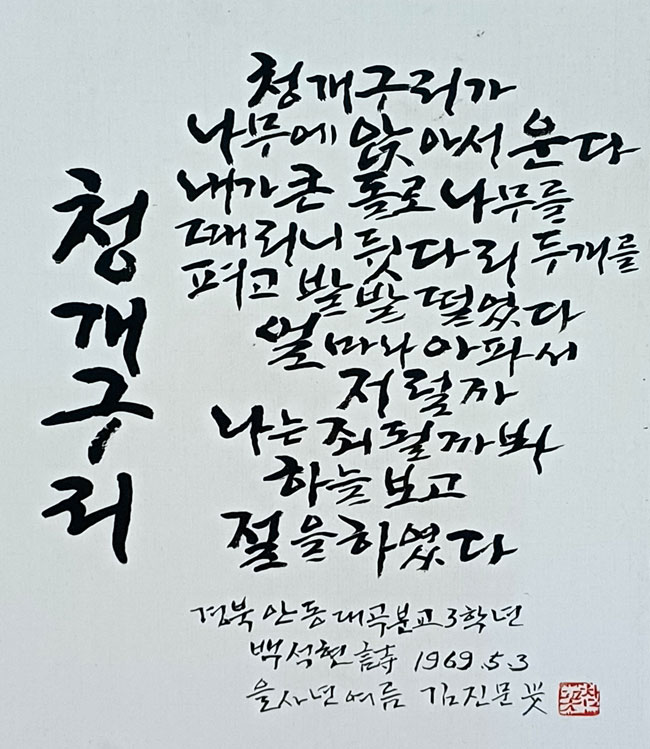 청개구리
청개구리가
나무에 앉아서 운다
내가 큰 돌로 나무를
때리니 뒷다리 두개를
펴고 발발 떨었다
얼마나 아파서
저럴까
나는 죄될까봐
하늘 보고
절을 하였다
경북 안동 대곡분교 3학년
백석현 詩 1969.5.3
을사년 여름 김진문 붓